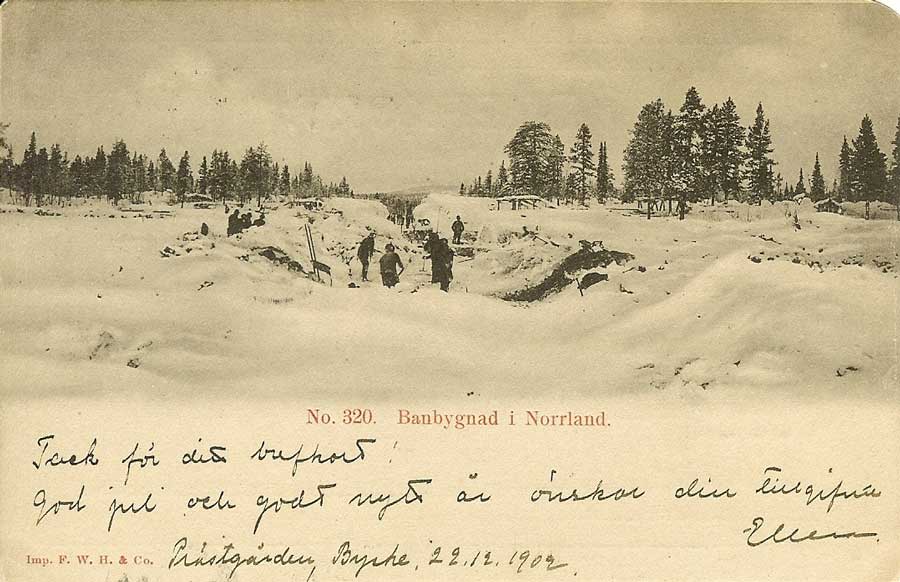 No. 320. Banbygnad i Norrland.
Tack för ditt brefkort!
God jul och godt nytt år önskar din tillgifna
Ellen
Imp. F. W. H. & Co.
Prästgården, Byske, 22.12.1902